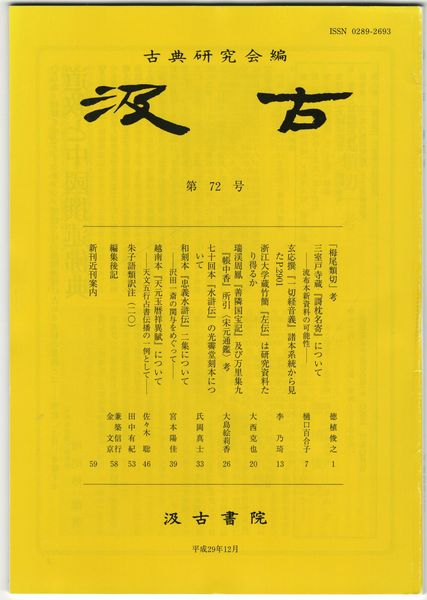 ISSN 0289-2693
古典研究会編
汲古
第 72 号
「栂尾類切」考 徳植俊之 1
三室戸寺蔵『謌枕名寄』について
――流布本新資料の可能性―― 樋口百合子 7
玄応撰『一切経音義』諸本系統から見
たP.2901 李乃琦 13
浙江大学蔵竹簡『左伝』は研究資料た
り得るか 大西克也 20
瑞渓周鳳『善隣国宝記』及び万里集九
『帳中香』所引〈宋元通鑑〉考 大島絵莉香 26
七十回本『水滸伝』の光霽堂刻本につ
いて 氏岡真士 33
和刻本『忠義水滸伝』二集について
――沢田一斎の関与をめぐって―― 宮本陽佳 39
越南本『天元玉暦祥異賦』について
――天文五行占書伝播の一例として―― 佐々木聡 46
朱子語類訳注(二〇) 田中有紀 53
編集後記 兼築信行
金文京 58
新刊近刊案内 59
汲古書院
平成29年12月